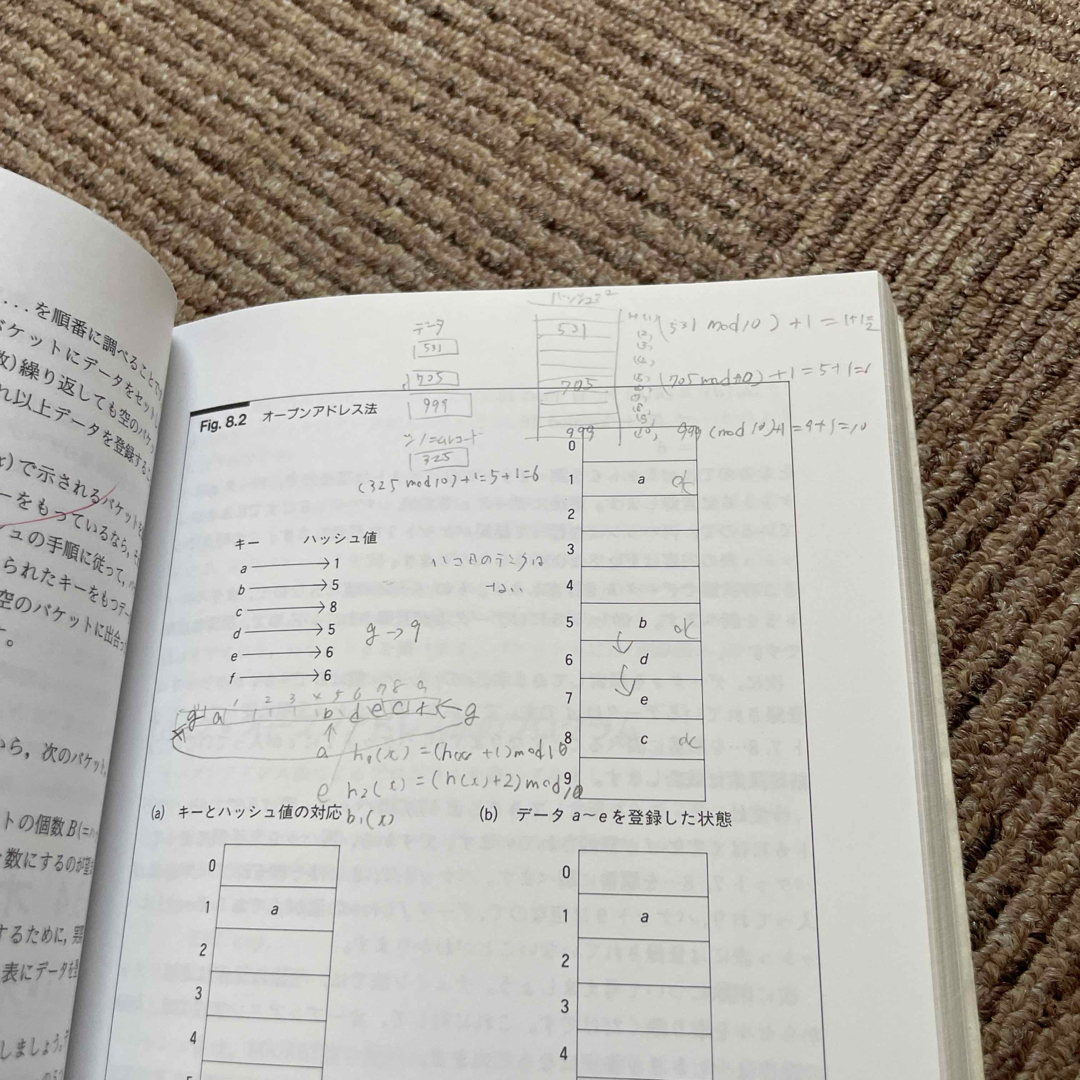 ...を順番に調べることで
バケットにデータをセット
数)繰り返しても空のバケッ
れ以上データを登録する
x)で示されるバケットを
ーをもっているなら,
シュの手順に従って,
られたキーをもつデー
空のバケットに出合っ
す。
から, 次のバケット,
ットの個数B(=
数にするのが望
するために, 実
表にデータを
しましょう。
データ
531
705
999
325
(325 mod 10)+1=5+1=6
531
705
999
(531 mod 10) +1 = 1+1=2
(705 mod 10) +1 = 5+1=6
999 (mod 10)+1 = 9+1=10
Fig. 8.2 オープンアドレス法
キー ハッシュ値
a 1
b 5
c 8
d 5
e 6
f 6
g → 9
g a b d e c f ← g
1 2 3 4 5 6 7 8 9
a
e
h₂(x) = (h(x)+2) mod 10
h₁(x)
0
1 a
2
3
4
5 b
6 d
7 e
8 c
9
(a) キーとハッシュ値の対応
(b) データ a~e を登録した状態
0
1 a
2
3
4
5
0
1 a
2
3
4